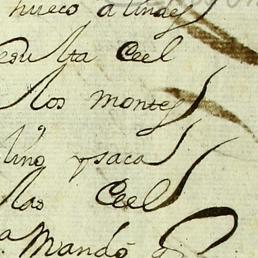 hueco alindes
esulta Ceel
los montes
lino ysaca
las Ceel
Mandó